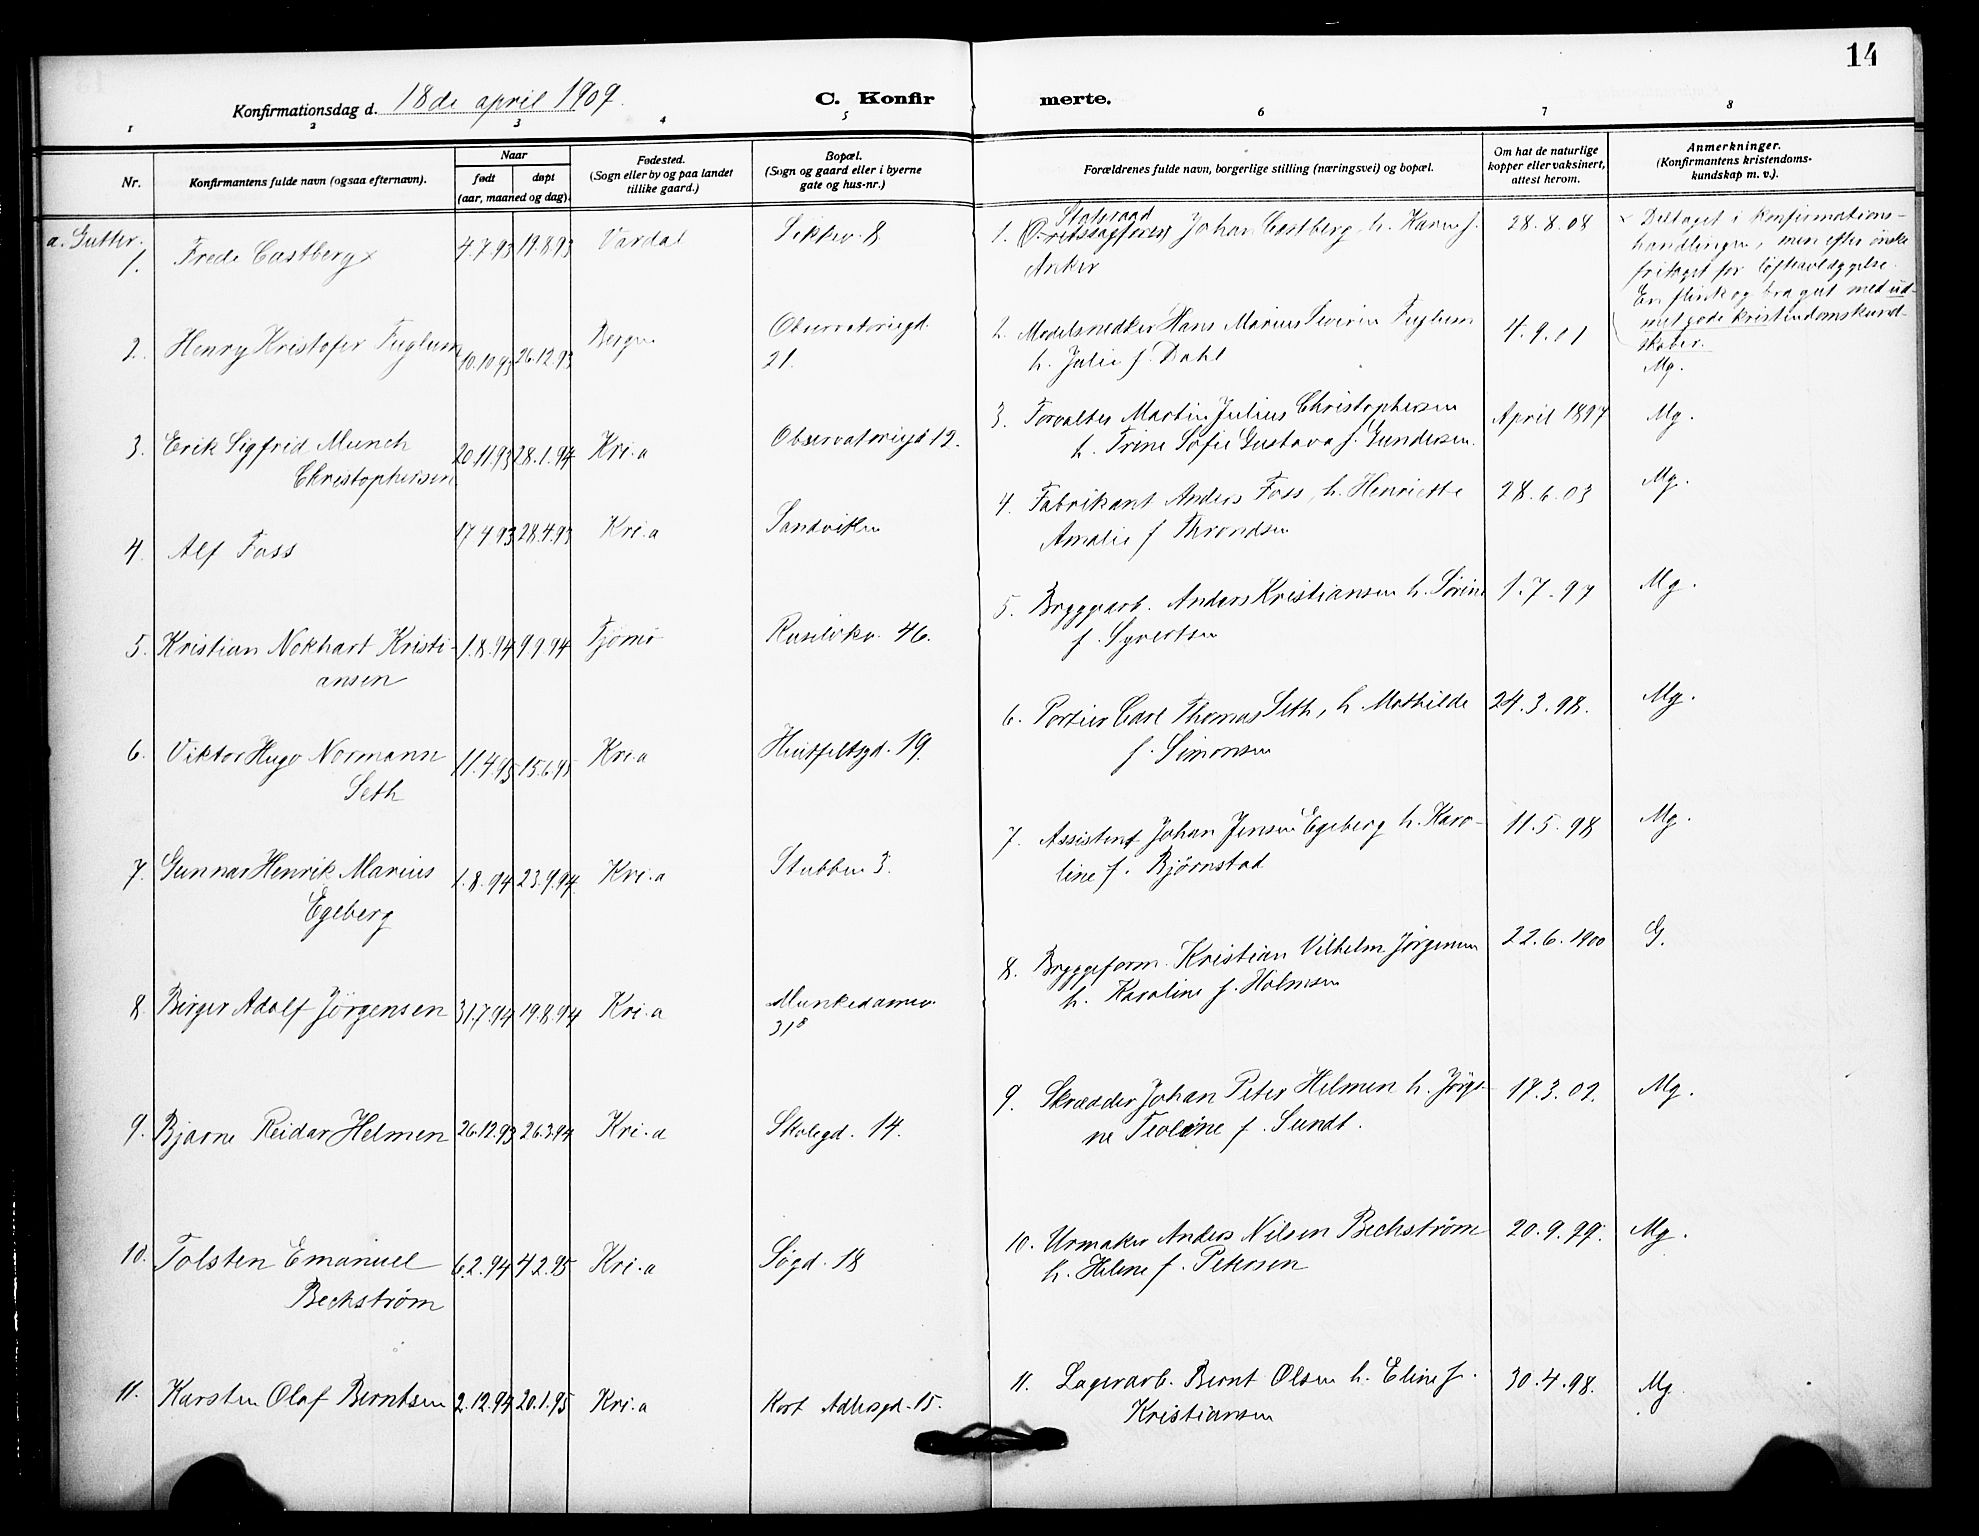 14
Konfirmationsdag d. 18de april 1909.
C. Konfir merte.
1 2 3 4 5 6 7 8
Nr.
Konfirmantens fulde navn (ogsaa efternavn).
Naar
født døpt
(aar, maaned og dag).
Fødested.
(Sogn eller by og paa landet
tillike gaard.)
Bopæl.
(Sogn og gaard eller i byerne
gate og hus-nr.)
Forældrenes fulde navn, borgerlige stilling (næringsvei) og bopæl.
Om hat de naturlige
kopper eller vaksinert,
attest herom.
Anmerkninger.
(Konfirmantens kristendoms-
kundskap m. v.).
a. Gutter.
1. Frede Castberg x 4.7.93 19.8.93 Vardal 8
Statsraad
1. Ø.retssagfører Johan Castberg, h. Karen f.
Anker
28.8.08
x Deltaget i konfirmations-
handlingen, men efter ønske
fritaget for løfteavlæggelse.
En flink og bra gut med ud-
met gode kristendomskund-
skaber.
Mg.
2. Henry Kristofer Fuglum 10.10.93 26.12.93 Bergen Observatoriegd.
21.
2. Modelsnedker Hans Marius Severin Fuglum
h. Julie f. Dahl
4.9.01
3. Erik Sigfrid Munch
Christophersen
20.11.93 28.1.94 Kri.a Observatorigd 12.
3. Forvalter Martin Julius Christophersen
h. Trine Sofie Gustava f. Gundersen.
April 1897 Mg.
4. Alf Foss 17.4.93 28.4.93 Kri.a Sandviken
4. Fabrikant Anders Foss, h. Henriette
Amalie f Throndsen
28.6.03 Mg.
5. Kristian Nokhart Kristi-
ansen
1.8.94 9.9.94 Tjømø Ruseløkv. 46.
5. Bryggearb. Anders Kristiansen h. Sørine
f. Syvertsen
1.7.97 Mg.
6. Viktor Hugo Normann
Seth
11.4.95 15.6.95 Kri.a Huitfeltsgd. 19.
6. Portier Carl Thomas Seth, h. Mathilde
f. Simonsen
24.3.98. Mg.
7. Gunnar Henrik Marius
Egeberg
1.8.94 23.9.94. Kri.a Stubben 3.
7. Assistent Johan Jensen Egeberg h. Karo-
line f. Bjørnstad
11.5.98 Mg.
8. Birger Adolf Jörgensen 31.7.94 19.8.94 Kri.a Munkedamsv.
8. Bryggeform. Kristian Vilhelm Jörgensen
h. Karoline f. Holmsen
22.6.1900 G.
9. Bjarne Reidar Helmen 26.12.93 26.3.94 Kri.a Skolegd. 14.
9. Skrædder Johan Peter Helmen h. Jörgi-
ne Teoline f. Sundt.
17.3.02. Mg.
10. Tolsten Emanuel
Bechstrøm
6.2.94 4.2.95 Kri.a Søgd. 18
10. Urmaker Anders Nilsen Bechstrøm
h. Helene f. Petersen
20.9.99. Mg.
11. Karsten Olaf Berntsen 2.12.94 20.1.95 Kri.a Kort Adlersgd. 15.
11. Lagerarb. Bernt Olsen h. Eline f.
Kristiansen
30.4.98. Mg.